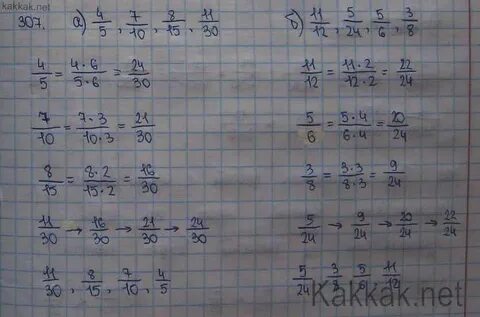 kakkak.net
307. а) 4/5, 7/10, 8/15, 11/30
4/5 = 4·6/5·6 = 24/30
7/10 = 7·3/10·3 = 21/30
8/15 = 8·2/15·2 = 16/30
11/30 → 16/30 → 21/30 → 24/30
11/30, 8/15, 7/10, 4/5
б) 11/12, 5/24, 5/6, 3/8
11/12 = 11·2/12·2 = 22/24
5/6 = 5·4/6·4 = 20/24
3/8 = 3·3/8·3 = 9/24
5/24 → 9/24 → 20/24 → 22/24
5/24 3/8 5/6 11/12
Kakkak.net